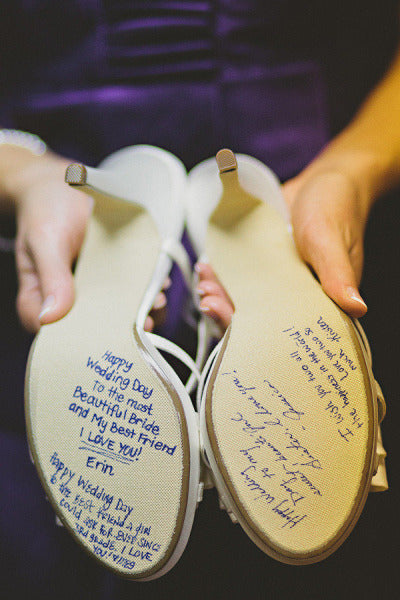 Happy
Wedding Day
To the most
Beautiful Bride
and My Best Friend
I LOVE YOU!
Erin
Happy Wedding Day
to the BEST FRIEND a girl
could ask for. EVER SINCE
3rd grade. I LOVE
YOU!
I wish you two all
the happiness in the world!
Love you two so
much. Kristen
Happy Wedding Day
to
I love you!